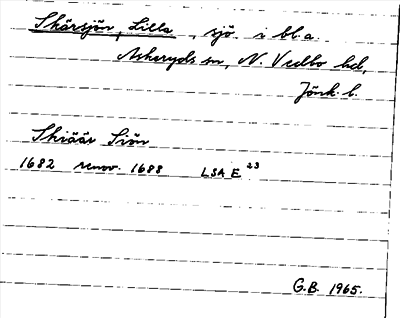 Skärsjön, Lilla, sjö i bl.a.
Askeryds sn, N. Vedbo hd,
Jönk. l.
Skiäär Siön
1682 renov. 1688 LSA E 23
G.B. 1965.